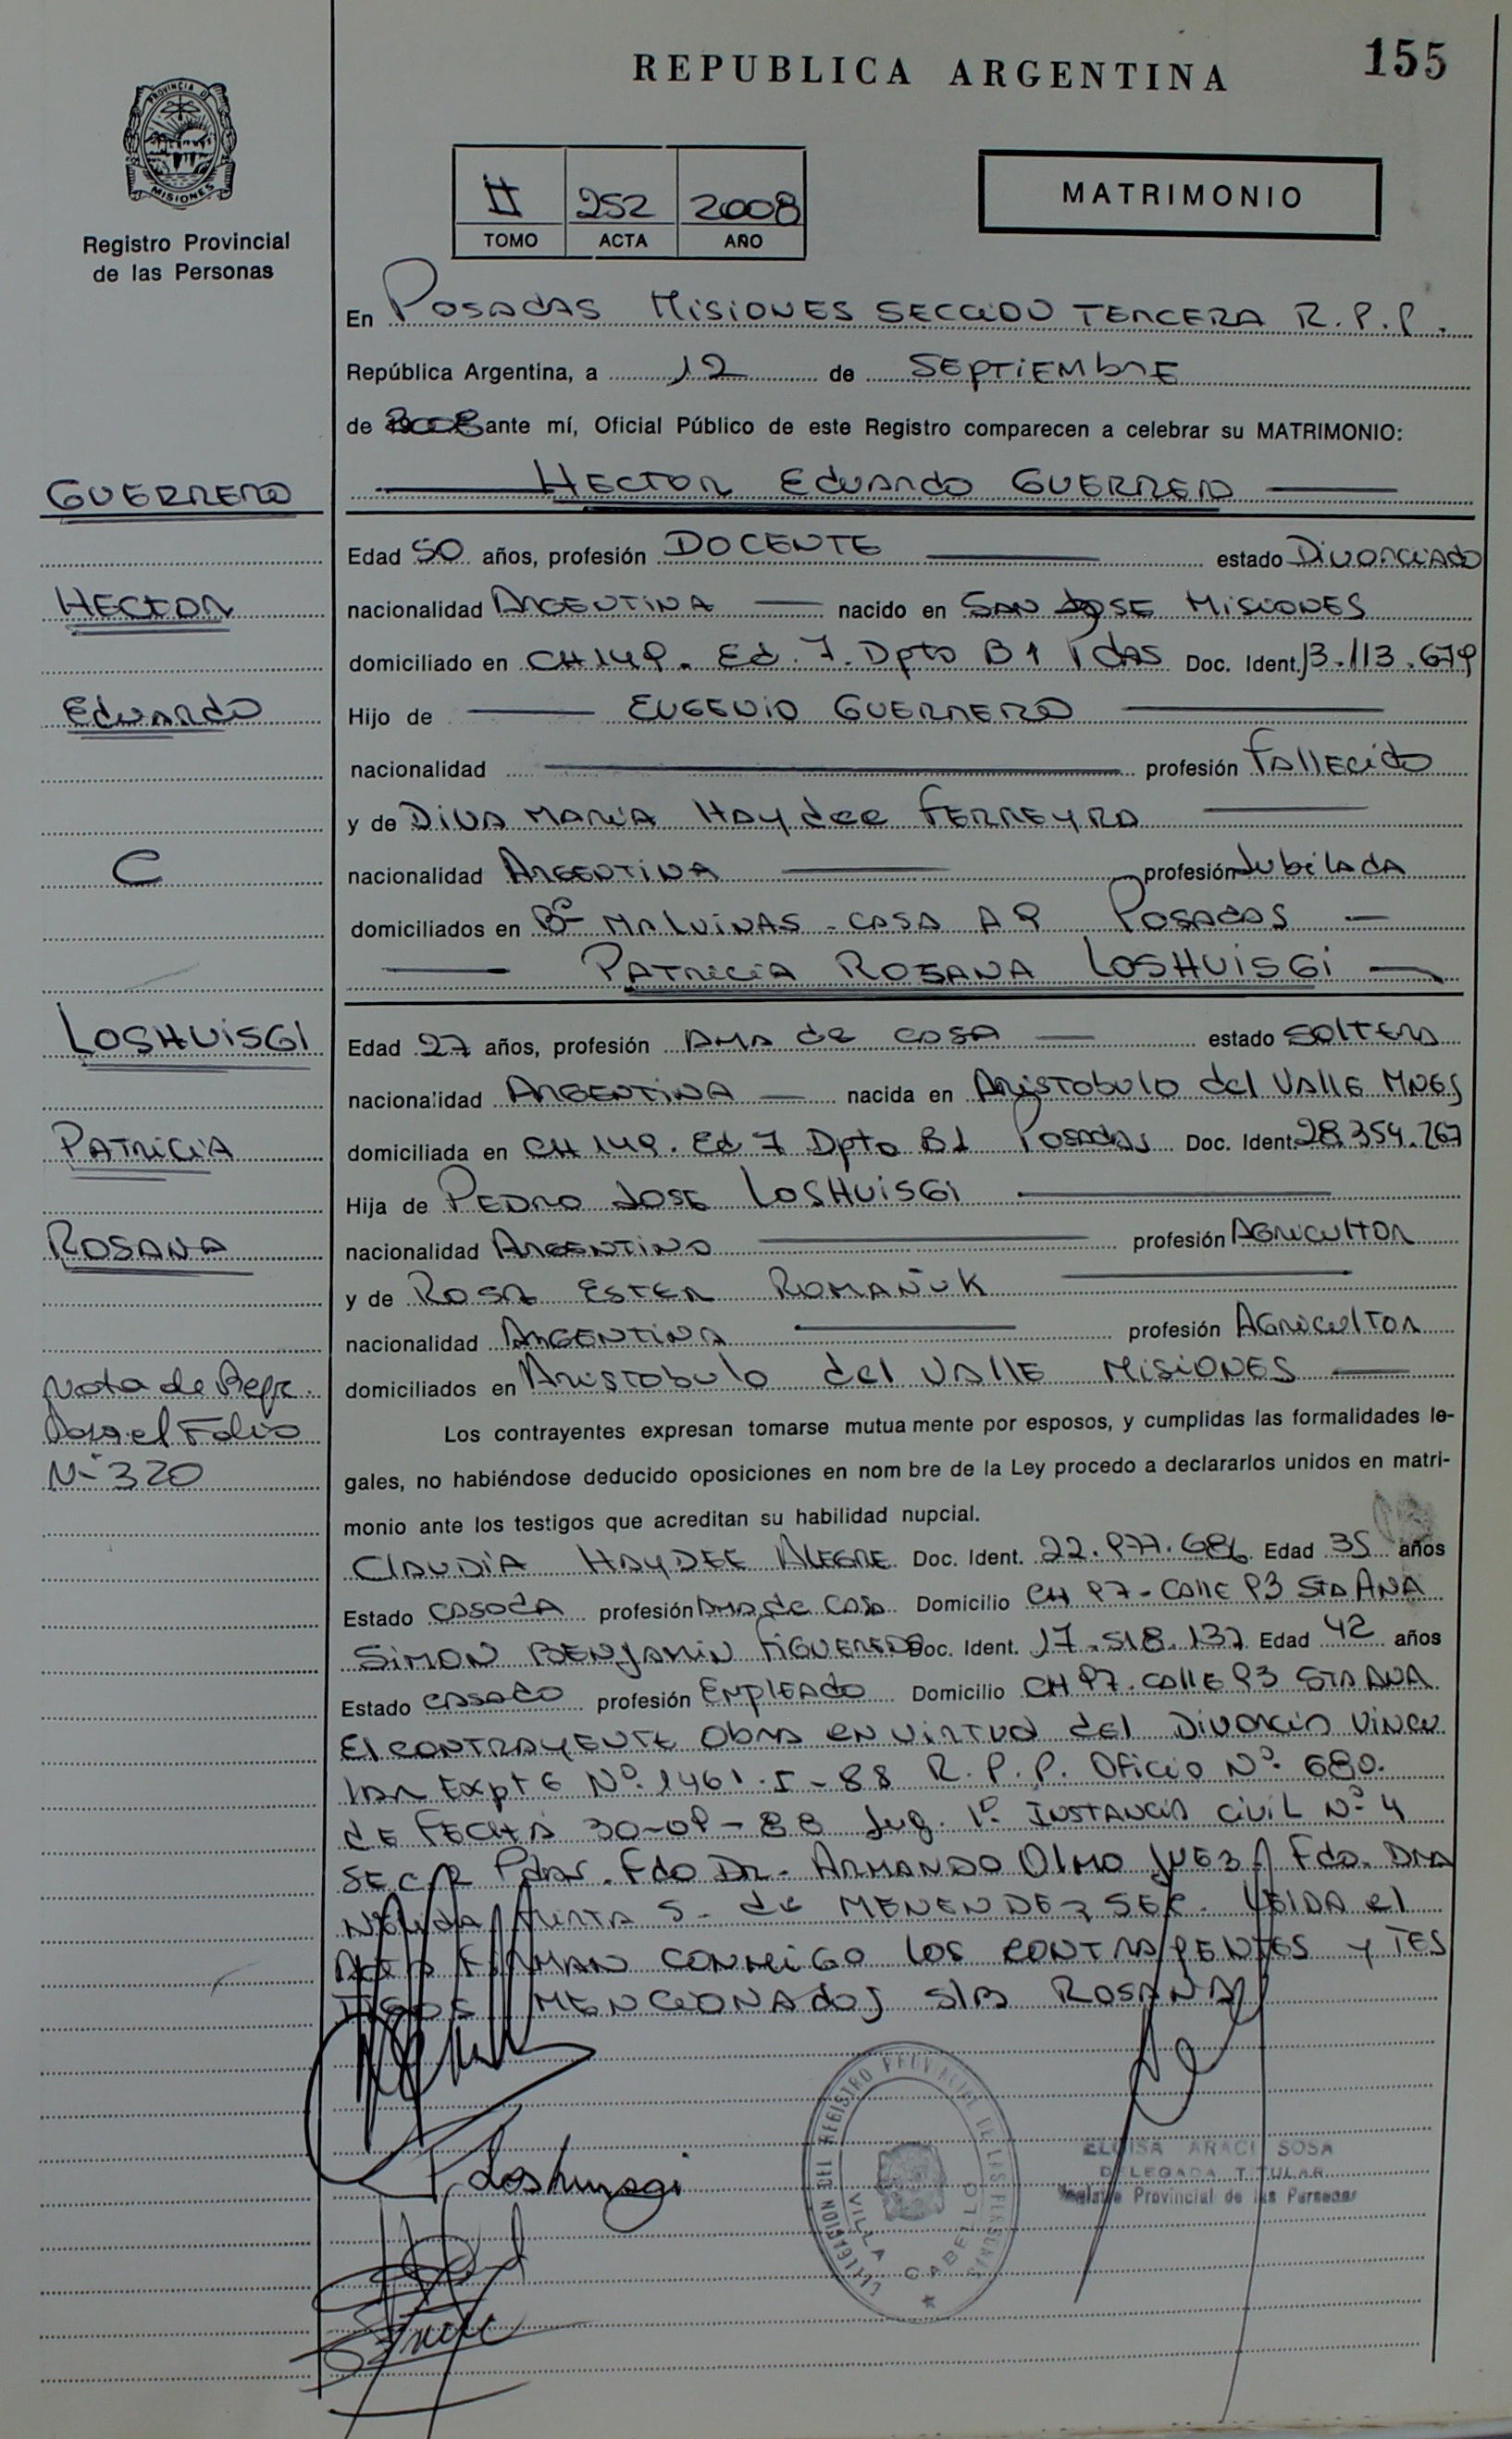 REPUBLICA ARGENTINA
155
PROVINCIA DE
MISIONES
Registro Provincial
de las Personas
II 252 2008
TOMO ACTA AÑO
MATRIMONIO
En POSADAS MISIONES SECCION TERCERA R.P.P.
República Argentina, a 12 de SEPTIEMBRE
de 2008 ante mí, Oficial Público de este Registro comparecen a celebrar su MATRIMONIO:
HECTOR EDUARDO GUERRERO
Edad 50 años, profesión DOCENTE estado DIVORCIADO
nacionalidad ARGENTINA nacido en SAN JOSE MISIONES
domiciliado en CH 149. Ed. 7. Dpto B1 Pdas Doc. Ident. 13.113.679
Hijo de EUGENIO GUERRERO
nacionalidad profesión Fallecido
y de DIVA MARIA HAYdee FERREYRA
nacionalidad ARGENTINA profesión Jubilada
domiciliados en Bº MALVINAS - CASA A 9 POSADAS
PATRICIA ROSANA LOSHUISGI
Edad 27 años, profesión AMA de CASA estado SOLTERA
nacionalidad ARGENTINA nacida en ARISTOBULO del VALLE MNES
domiciliada en CH 149. Ed 7 Dpto B1 Posadas Doc. Ident. 28.354.767
Hija de PEDRO JOSE LOSHUISGI
nacionalidad ARGENTINO profesión AGRICULTOR
y de ROSA ESTER ROMAÑUK
nacionalidad ARGENTINA profesión AGRICULTOR
domiciliados en ARISTOBULO del VALLE MISIONES
Los contrayentes expresan tomarse mutuamente por esposos, y cumplidas las formalidades le-
gales, no habiéndose deducido oposiciones en nombre de la Ley procedo a declararlos unidos en matri-
monio ante los testigos que acreditan su habilidad nupcial.
CLAUDIA HAYDEE ALEGRE Doc. Ident. 22.977.686 Edad 35 años
Estado CASADA profesión AMA de CASA Domicilio CH 97 - CALLE 93 STA ANA
SIMON BENJAMIN FIGUEREDO Doc. Ident. 17.518.137 Edad 42 años
Estado CASADO profesión EMPLEADO Domicilio CH 97. CALLE 93 STA ANA
El CONTRAYENTE OBRA en VIRTUD del DIVORCIO VINCU
LAR Expte Nº 1461.I-88 R.P.P. Oficio Nº 680.
dE FECHA 30-09-88 Juz. 1º INSTANCIA CIVIL Nº 4
SEC. Pdas. Fdo Dr. ARMANDO OLMO JUEZ. Fdo. DRA
S. de MENENDEZ SEC. LEIDA el
ACTA FIRMAN CONMIGO los CONTRAYENTES y TES
TIGOS MENCIONADOS S/B ROSANA
GUERRERO
HECTOR
EDUARDO
C
LOSHUISGI
PATRICIA
ROSANA
Nota de Refr.
Pasa el Folio
Nº 320
Loshuisgi
DELEGACION DEL REGISTRO PROVINCIAL DE LAS PERSONAS
VILLA CABELLO
ELOISA ARACI SOSA
DELEGADA TITULAR
Registro Provincial de las Personas